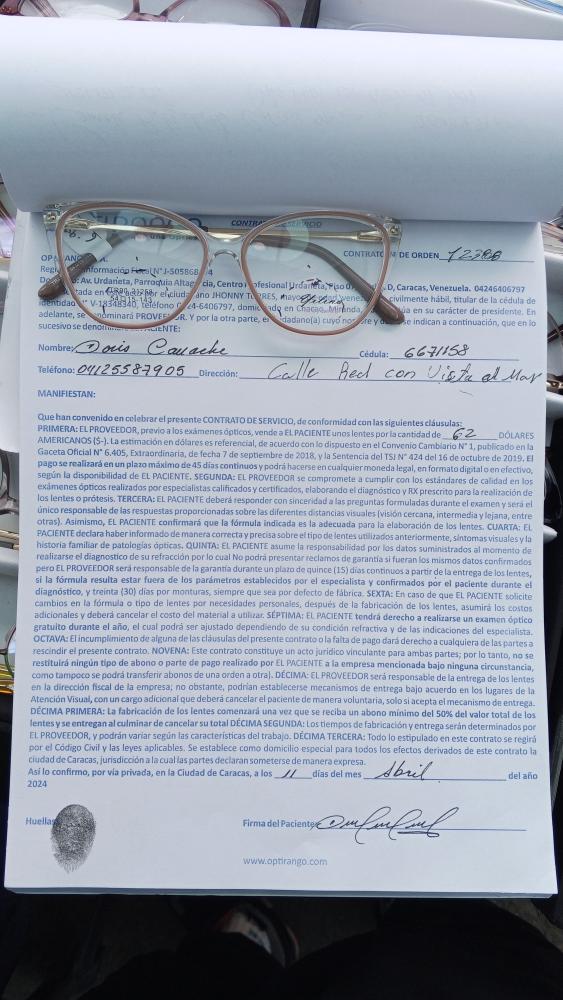 CONTRATO DE SERVICIO
CONTRATO DE ORDEN 12388
Av. Urdaneta, Parroquia Altagracia, Centro Profesional Urdaneta, Piso D, Caracas, Venezuela. 04246406797
ciudadano JHONNY TORRES, mayor civilmente hábil, titular de la cédula de
identidad N° V-18348340, teléfono 0424-6406797, en Chacao, Miranda, en su carácter de presidente. En
adelante, se denominará PROVEEDOR. Y por la otra parte, el ciudadano(a) cuyo nombre y se indican a continuación, que en lo
sucesivo se denominará PACIENTE:
Nombre: Doris Cédula: 6671158
Teléfono: 04125587905 Dirección: Calle Real con Vista al Mar
MANIFIESTAN:
Que han convenido en celebrar el presente CONTRATO DE SERVICIO, de conformidad con las siguientes cláusulas:
PRIMERA: EL PROVEEDOR, previo a los exámenes ópticos, vende a EL PACIENTE unos lentes por la cantidad de 62 DÓLARES
AMERICANOS ($-). La estimación en dólares es referencial, de acuerdo con lo dispuesto en el Convenio Cambiario N° 1, publicado en la
Gaceta Oficial N° 6.405, Extraordinaria, de fecha 7 de septiembre de 2018, y la Sentencia del TSJ N° 424 del 16 de octubre de 2019. El
pago se realizará en un plazo máximo de 45 días continuos y podrá hacerse en cualquier moneda legal, en formato digital o en efectivo,
según la disponibilidad de EL PACIENTE. SEGUNDA: EL PROVEEDOR se compromete a cumplir con los estándares de calidad en los
exámenes ópticos realizados por especialistas calificados y certificados, elaborando el diagnóstico y RX prescrito para la realización de
los lentes o prótesis. TERCERA: EL PACIENTE deberá responder con sinceridad a las preguntas formuladas durante el examen y será el
único responsable de las respuestas proporcionadas sobre las diferentes distancias visuales (visión cercana, intermedia y lejana, entre
otras). Asimismo, EL PACIENTE confirmará que la fórmula indicada es la adecuada para la elaboración de los lentes. CUARTA: EL
PACIENTE declara haber informado de manera correcta y precisa sobre el tipo de lentes utilizados anteriormente, síntomas visuales y la
historia familiar de patologías ópticas. QUINTA: EL PACIENTE asume la responsabilidad por los datos suministrados al momento de
realizarse el diagnostico de su refracción por lo cual No podrá presentar reclamos de garantía si fueran los mismos datos confirmados
pero EL PROVEEDOR será responsable de la garantía durante un plazo de quince (15) días continuos a partir de la entrega de los lentes,
si la fórmula resulta estar fuera de los parámetros establecidos por el especialista y confirmados por el paciente durante el
diagnóstico, y treinta (30) días por monturas, siempre que sea por defecto de fábrica. SEXTA: En caso de que EL PACIENTE solicite
cambios en la fórmula o tipo de lentes por necesidades personales, después de la fabricación de los lentes, asumirá los costos
adicionales y deberá cancelar el costo del material a utilizar. SÉPTIMA: EL PACIENTE tendrá derecho a realizarse un examen óptico
gratuito durante el año, el cual podrá ser ajustado dependiendo de su condición refractiva y de las indicaciones del especialista.
OCTAVA: El incumplimiento de alguna de las cláusulas del presente contrato o la falta de pago dará derecho a cualquiera de las partes a
rescindir el presente contrato. NOVENA: Este contrato constituye un acto jurídico vinculante para ambas partes; por lo tanto, no se
restituirá ningún tipo de abono o parte de pago realizado por EL PACIENTE a la empresa mencionada bajo ninguna circunstancia,
como tampoco se podrá transferir abonos de una orden a otra). DÉCIMA: EL PROVEEDOR será responsable de la entrega de los lentes
en la dirección fiscal de la empresa; no obstante, podrían establecerse mecanismos de entrega bajo acuerdo en los lugares de la
Atención Visual, con un cargo adicional que deberá cancelar el paciente de manera voluntaria, solo si acepta el mecanismo de entrega.
DÉCIMA PRIMERA: La fabricación de los lentes comenzará una vez que se reciba un abono mínimo del 50% del valor total de los
lentes y se entregan al culminar de cancelar su total DÉCIMA SEGUNDA: Los tiempos de fabricación y entrega serán determinados por
EL PROVEEDOR, y podrán variar según las características del trabajo. DÉCIMA TERCERA: Todo lo estipulado en este contrato se regirá
por el Código Civil y las leyes aplicables. Se establece como domicilio especial para todos los efectos derivados de este contrato la
ciudad de Caracas, jurisdicción a la cual las partes declaran someterse de manera expresa.
Así lo confirmo, por vía privada, en la Ciudad de Caracas, a los 11 días del mes Abril del año
2024
Huellas Firma del Paciente
www.optirango.com